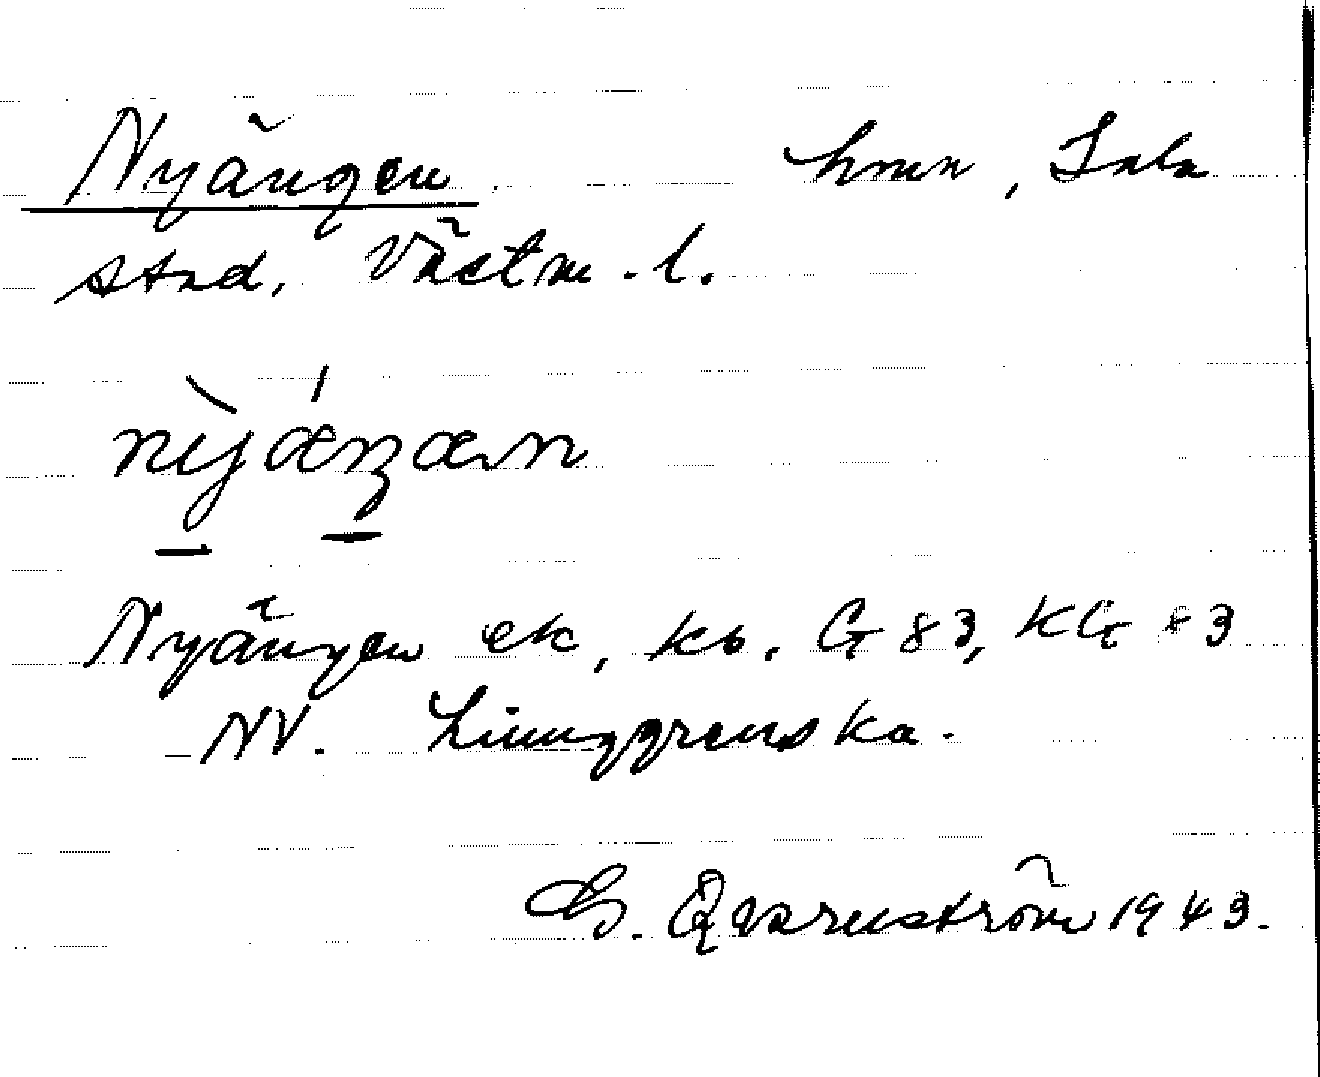 Nyängen hmn, Sala
stad, Västm. l.
nỳǽŋæn
Nyängen ek, kb. G 83, KG 83
NV. Ljunggrenska.
G. Qvarnström 1943.